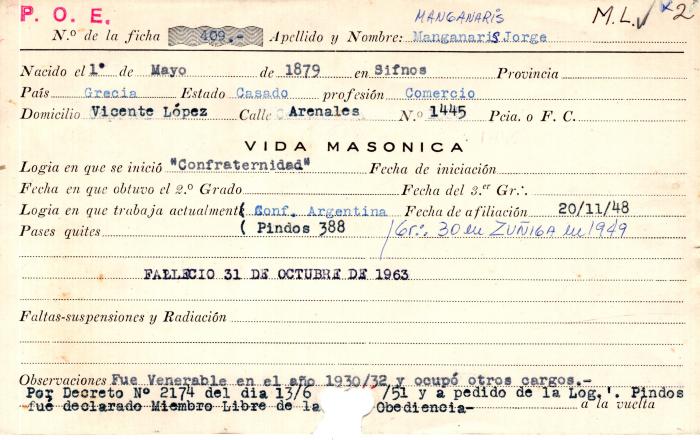 P. O. E. MANGANARIS M.L. ✓ x2
N.º de la ficha 409.- Apellido y Nombre: Manganaris Jorge
Nacido el 1º de Mayo de 1879 en Sifnos Provincia
País Grecia Estado Casado profesión Comercio
Domicilio Vicente López Calle Arenales N.º 1445 Pcia. o F. C.
VIDA MASONICA
Logia en que se inició "Confraternidad" Fecha de iniciación
Fecha en que obtuvo el 2.º Grado Fecha del 3.er Gr∴
Logia en que trabaja actualment ( Conf. Argentina Fecha de afiliación 20/11/48
Pases quites ( Pindos 388 /Gr∴ 30 en ZUÑIGA en 1949
FALLECIO 31 DE OCTUBRE DE 1963
Faltas-suspensiones y Radiación
Observaciones Fue Venerable en el año 1930/32 y ocupó otros cargos.-
Por Decreto Nº 2174 del dia 13/6 /51 y a pedido de la Log.'. Pindos
fué declarado Miembro Libre de la Obediencia- a la vuelta